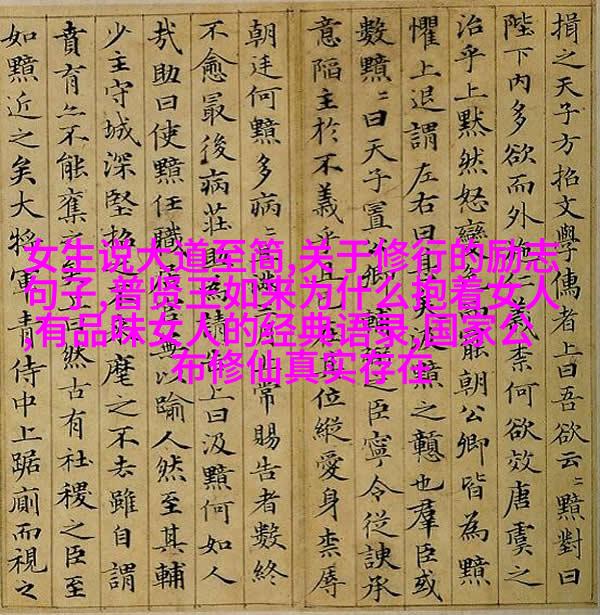 揖之天子方招文學儒者上曰吾欲云〻黯對曰
陛下內多欲而外施義柰何欲效唐虞之
治乎上默然怒變色而罷朝公卿皆為黯
懼上退謂左右曰甚矣黯之戇也羣臣或
數黯〻曰天子置公卿輔之臣寧令從諛承
意陷主於不義乎在其位縱愛身柰辱
朝廷何黯多病滿三月上常賜告者數終
不愈最後病莊助為請上曰汲黯何如人
哉助曰使黯任職居無以踰人然至其輔
少主守城深堅招之來麾之不去雖自謂
賁育亦不能奪之矣上曰然古有社稷之臣至
如黯近之矣大將軍青侍中上踞廁而視之
女生说大道至简,关于修行的励志
句子,普贤王如来为什么抱着女人
,有品味女人的经典语录,国家公
布修仙真实存在